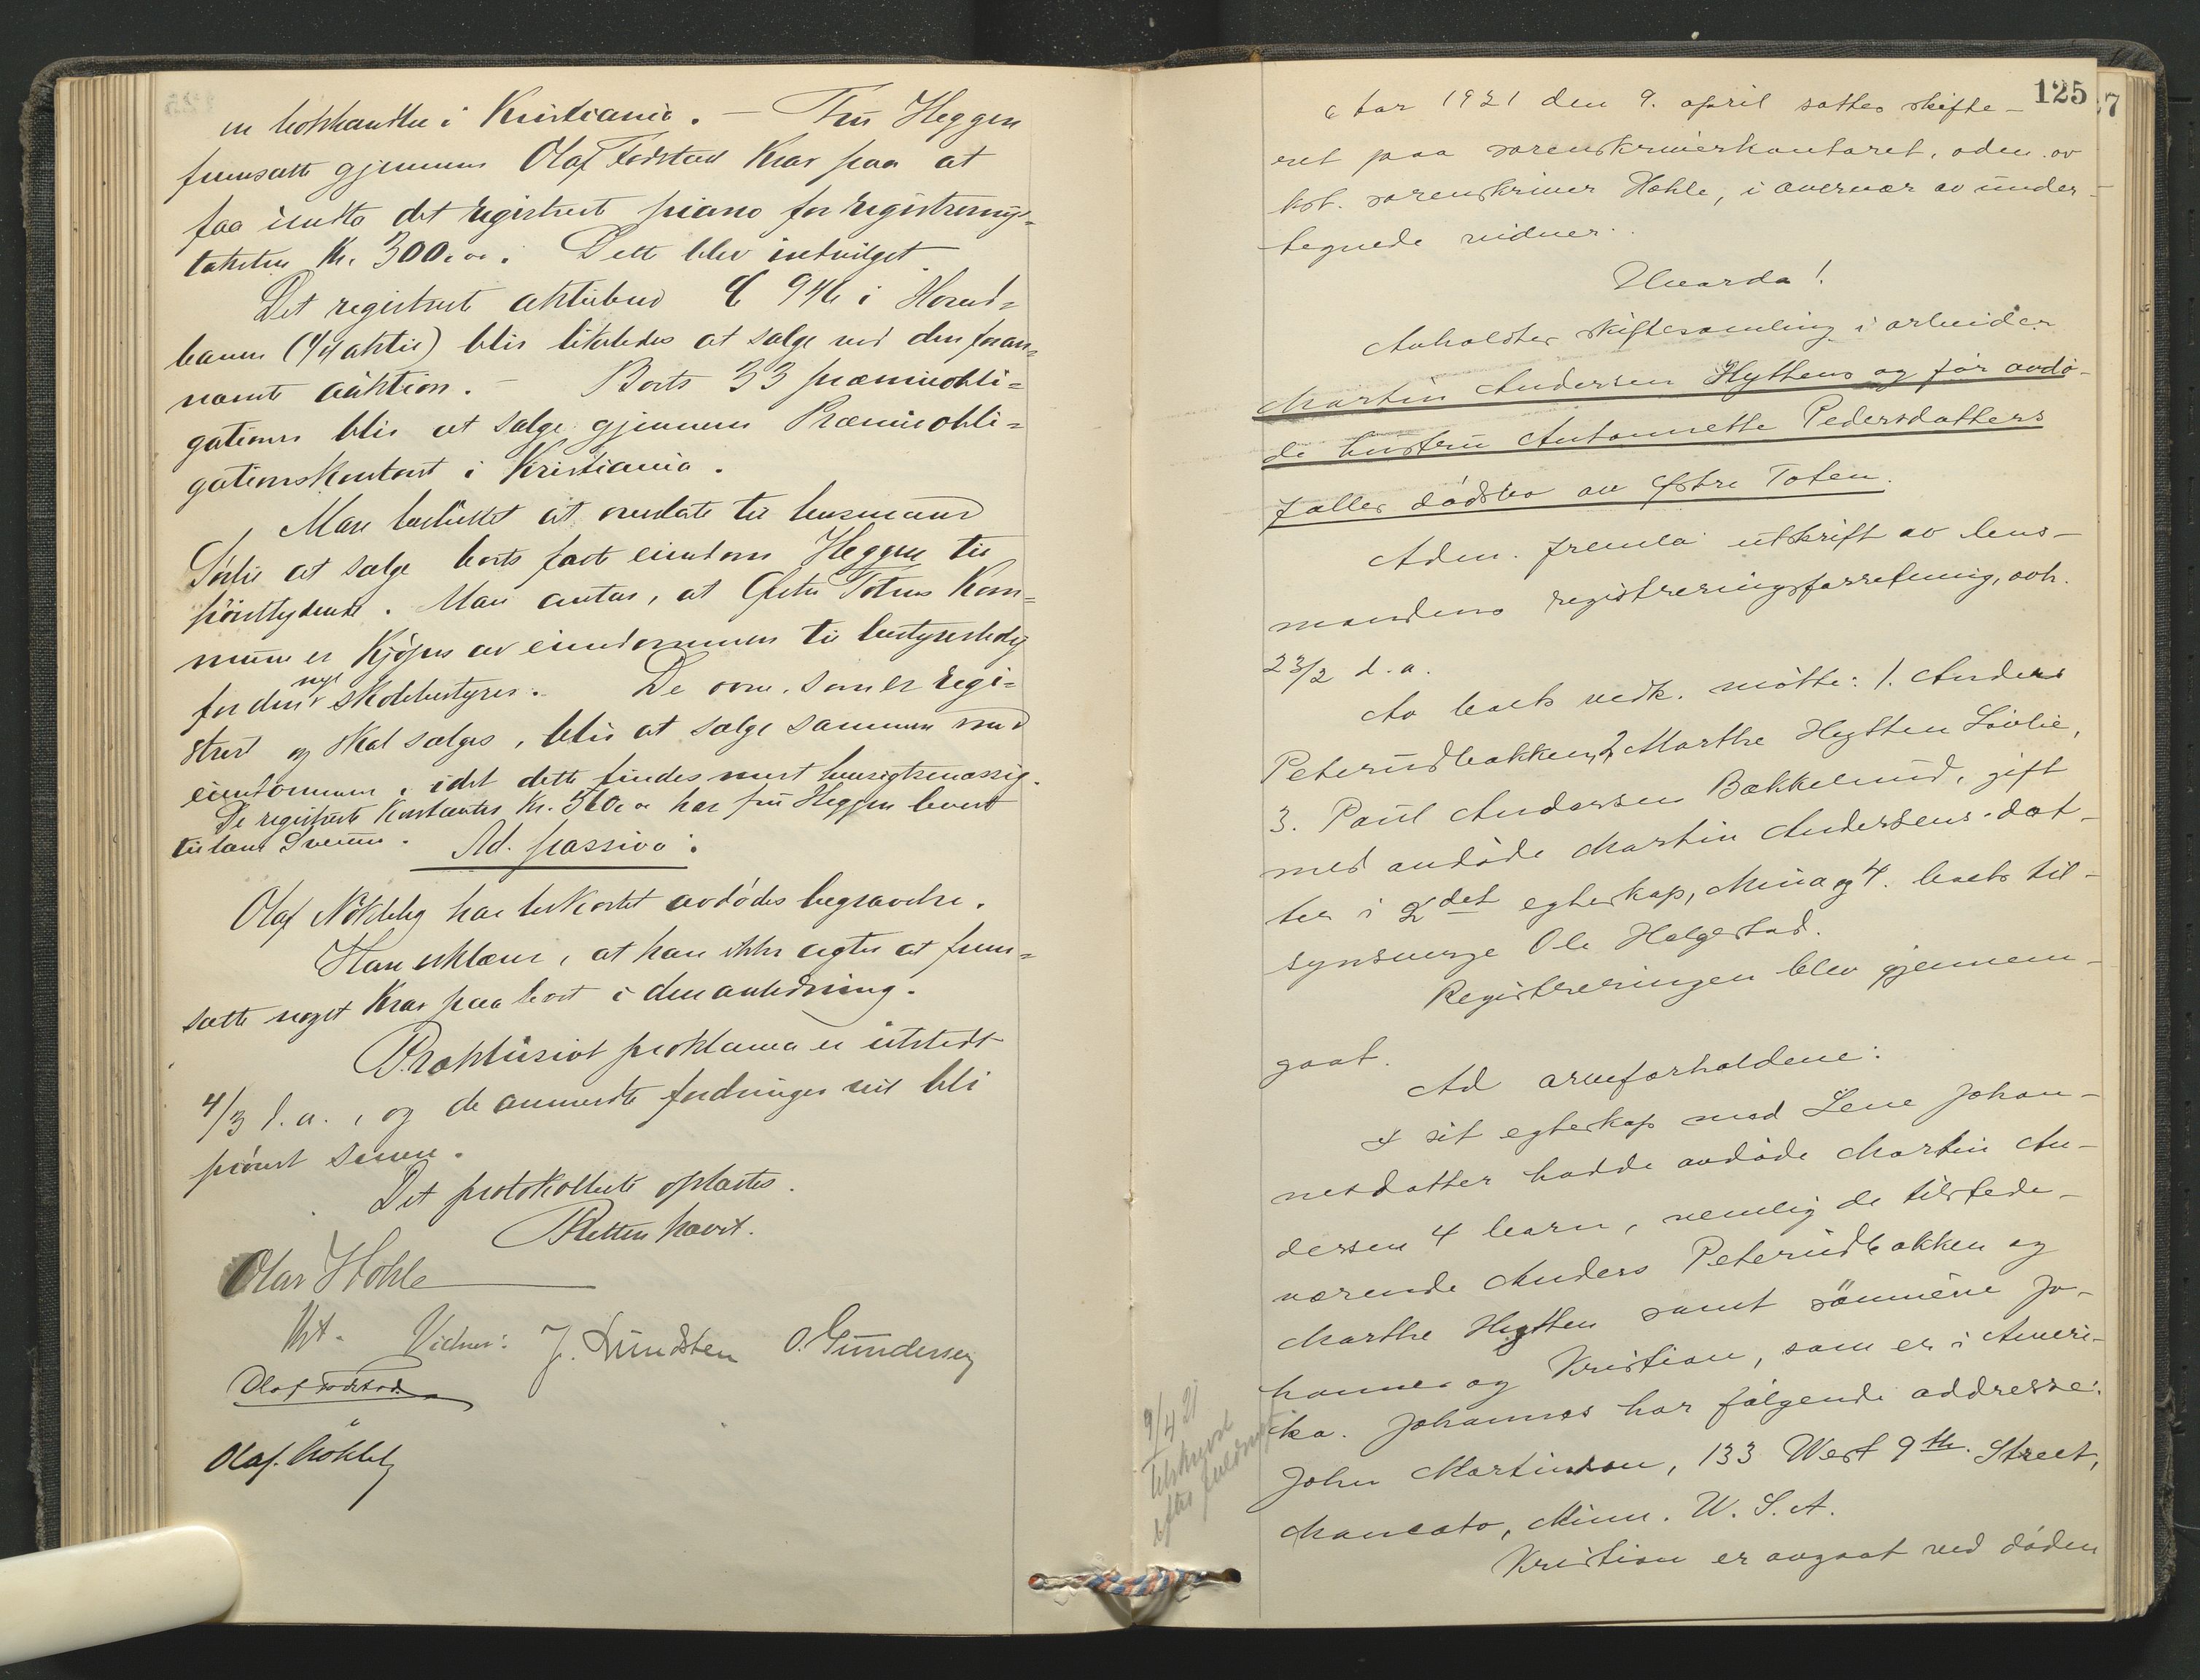 en bokhandler i Kristiania. — Fru Heggen
fremsatte gjennem Olaf Fodstad krav paa at
faa indta det registrert piano for registrerings-
taksten kr. 300.00. Dette blev indvilget.
Det registrert aktiebrev C 946 i Hoved-
banen (1/4 aktie) blir likeledes at sælge ved den foran-
nævnte auktion. — Boets 33 præmieobli-
gationer blir at sælge gjennem Præmieobli-
gationskontoret i Kristiania.
Man besluttet at overlate til lensmand
at sælge boets faste eiendom Heggen til
høistbydende. Man antar, at Østre Totens kom-
mune er kjøper av eiendommen til bestyrerbolig
for den nye skolebestyrer. De ovne, som er regi-
strert og skal sælges, blir at sælge sammen med
eiendommen, idet dette findes mest hensigtsmæssig.
De registrerte kontanter kr. 560.00 har fru Heggen levert
til lensm.
Ad. passiva:
Olaf Nøkleby har bekostet avdødes begravelse.
Han erklærer, at han ikke agter at frem-
sætte noget krav paa boet i den anledning.
Præklusivt proklama er utstedt
4/3 d.a., og de anmeldte fordringer vil bli
prøvet senere.
Det protokollerte oplæstes.
Retten hævet.
Olav Hohle
kst. Vidner: J. Lundsten O. Gundersen
Olaf Fodstad
Olaf Nökleby
125
Aar 1921 den 9. april sattes skifte-
ret paa sorenskriverkontoret, adm. av
kst. sorenskriver Hohle, i overvær av under-
tegnede vidner.
Hvorda!
Anholdtes skiftesamling i arbeider
Martin Andersen Hyttens og før avdø-
de hustru Antonnette Pedersdatters
fælles dødsbo av Østre Toten.
Adm. fremla utskrift av lens-
mandens registreringsforretning, avh.
23/2 d.a.
Av boets vedk. møtte: 1. Anders
Peterudbakken, 2. Marthe Hytten Lövlie,
3. Paul Andersen Bækkelund, gift
med avdøde Martin Andersens dat-
ter i 2det egteskap, Mina og 4. boets til-
synsverge Ole Helgestad.
Registreringen blev gjennem-
gaat.
Ad arveforholdene:
I sit egteskap med Lene Johan-
nesdatter hadde avdøde Martin An-
dersen 4 barn, nemlig de tilstede-
værende Anders Peterudbakken og
Marthe Hytten samt sönnene Jo-
hannes og Kristian, som er i Ameri-
ka. Johannes har følgende addresse:
John Martinson, 133 West 9th. Street,
Mancato, Minn. U.S.A.
Kristian er avgaat ved døden
9/4 21
tilskrevet
efter